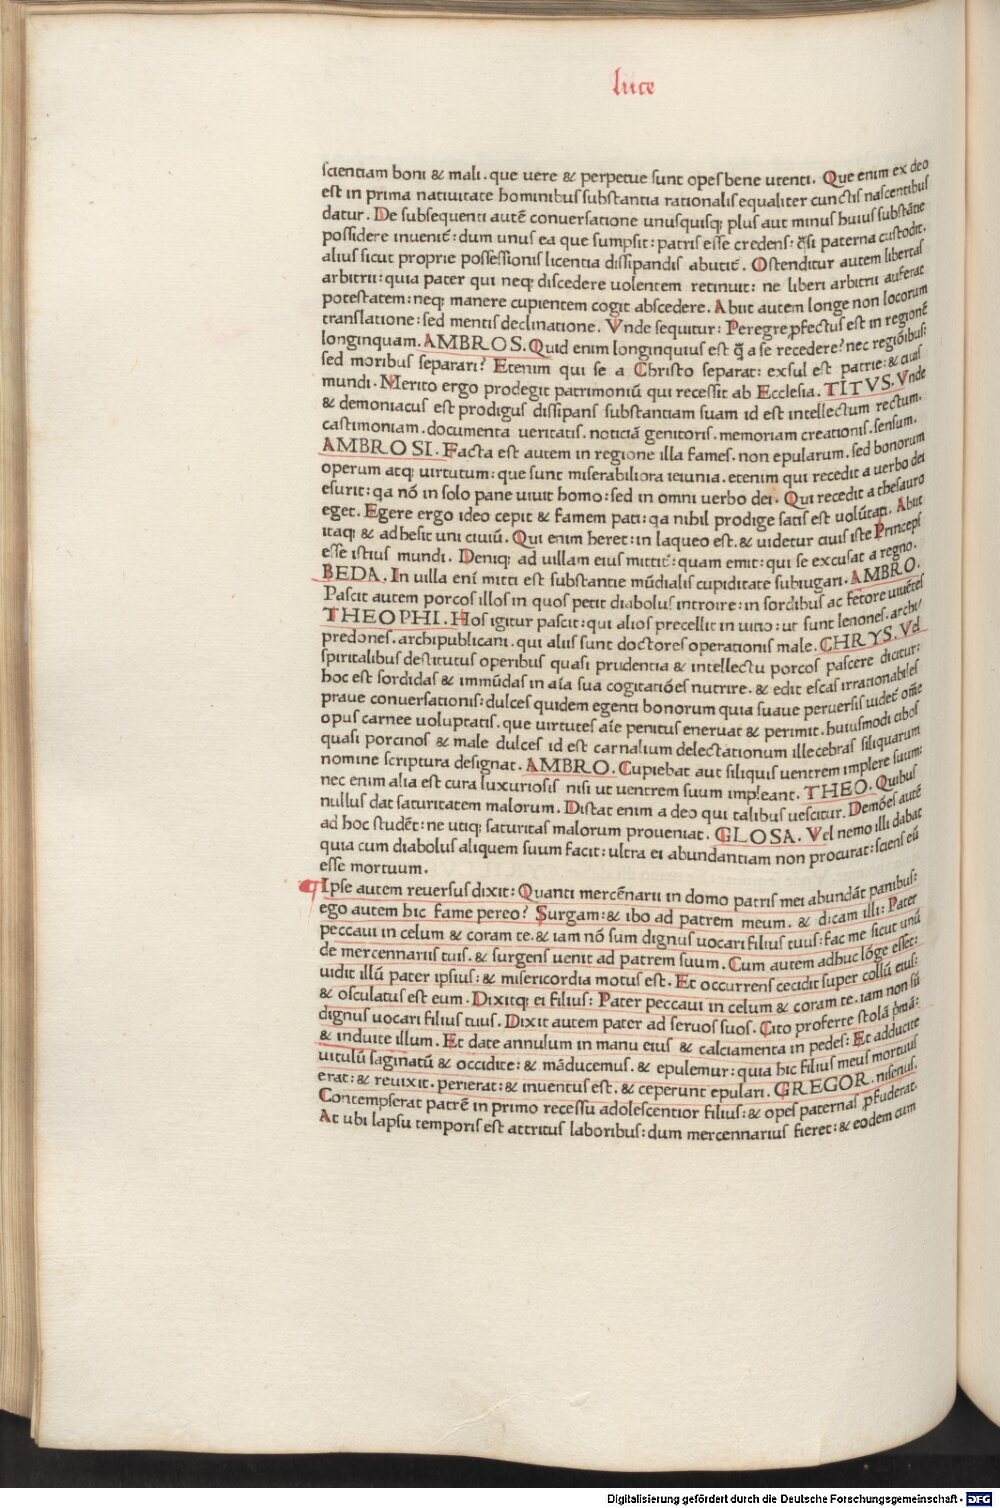 luce
scientiam boni & mali. que uere & perpetue sunt opes bene utenti. Que enim ex deo
est in prima natiuitate hominibus substantia rationalis equaliter cunctis nascentibus
datur. De subsequenti autē conuersatione unusquisq; plus aut minus huius substātie
possidere inuenit᷑: dum unus ea que sumpsit: patris esse credens: q̄si paterna custodit.
alius sicut proprie possessionis licentia dissipandis abutit᷑. Ostenditur autem libertas
arbitrii: quia pater qui neq; discedere uolentem retinuit: ne liberi arbitrii auferat
potestatem: neq; manere cupientem cogit abscedere. Abiit autem longe non locorum
translatione: sed mentis declinatione. Vnde sequitur: Peregre ꝓfectus est in regionē
longinquam. AMBROS. Quid enim longinquius est q̄ a se recedere? nec regiōibus:
sed moribus separari? Etenim qui se a Christo separat: exsul est patrie: & ciuis
mundi. Merito ergo prodegit patrimoniū qui recessit ab Ecclesia. TITVS. Vnde
& demoniacus est prodigus dissipans substantiam suam id est intellectum rectum.
castimoniam. documenta ueritatis. noticiā genitoris. memoriam creationis. sensum.
AMBROSI. Facta est autem in regione illa fames. non epularum. sed bonorum
operum atq; uirtutum: que sunt miserabiliora ieiunia. etenim qui recedit a uerbo dei
esurit: qa nō in solo pane uiuit homo: sed in omni uerbo dei. Qui recedit a thesauro
eget. Egere ergo ideo cepit & famem pati: qa nihil prodige satis est uolūtati. Abiit
itaq; & adhesit uni ciuiū. Qui enim heret: in laqueo est. & uidetur ciuis iste Princeps
esse istius mundi. Deniq; ad uillam eius mittit᷑: quam emit: qui se excusat a regno.
BEDA. In uilla eni᷑ mitti est substantie mūdialis cupiditate subiugari. AMBRO.
Pascit autem porcos illos in quos petit diabolus introire: in sordibus ac fetore uiuētes
THEOPHI. Hos igitur pascit: qui alios precellit in uitio: ut sunt lenones. archi/
predones. archipublicani. qui aliis sunt doctores operationis male. CHRYS. Vel
spiritalibus destitutus operibus quasi prudentia & intellectu porcos pascere dicitur:
hoc est sordidas & immūdas in aīa sua cogitatiōes nutrire. & edit escas irrationabiles
praue conuersationis: dulces quidem egenti bonorum quia suaue peruersis uidet᷑ om̄e
opus carnee uoluptatis. que uirtutes aīe penitus eneruat & perimit. huiusmodi cibos
quasi porcinos & male dulces id est carnalium delectationum illecebras siliquarum
nomine scriptura designat. AMBRO. Cupiebat aut siliquis uentrem implere suum:
nec enim alia est cura luxuriosis nisi ut uentrem suum impleant. THEO. Quibus
nullus dat saturitatem malorum. Distat enim a deo qui talibus uescitur. Demōes autē
ad hoc studēt: ne utiq; saturitas malorum proueniat. GLOSA. Vel nemo illi dabat
quia cum diabolus aliquem suum facit: ultra ei abundantiam non procurat: sciens eū
esse mortuum.
Ipse autem reuersus dixit: Quanti mercēnarii in domo patris mei abundāt panibus:
ego autem hic fame pereo? Surgam: & ibo ad patrem meum. & dicam illi: Pater
peccaui in celum & coram te. & iam nō sum dignus uocari filius tuus: fac me sicut unū
de mercennariis tuis. & surgens uenit ad patrem suum. Cum autem adhuc lōge esset:
uidit illū pater ipsius: & misericordia motus est. Et occurrens cecidit super collū eius:
& osculatus est eum. Dixitq; ei filius: Pater peccaui in celum & coram te. iam non sū
dignus uocari filius tuus. Dixit autem pater ad seruos suos. Cito proferte stolā pmā:
& induite illum. Et date annulum in manu eius & calciamenta in pedes: Et adducite
uitulū saginatū & occidite: & māducemus. & epulemur: quia hic filius meus mortuus
erat: & reuixit. perierat: & inuentus est. & ceperunt epulari. GREGOR. nisenus.
Contempserat patrē in primo recessu adolescentior filius: & opes paternas ꝓfuderat.
At ubi lapsu temporis est attritus laboribus: dum mercennarius fieret: & eodem cum
Digitalisierung gefördert durch die Deutsche Forschungsgemeinschaft - DFG